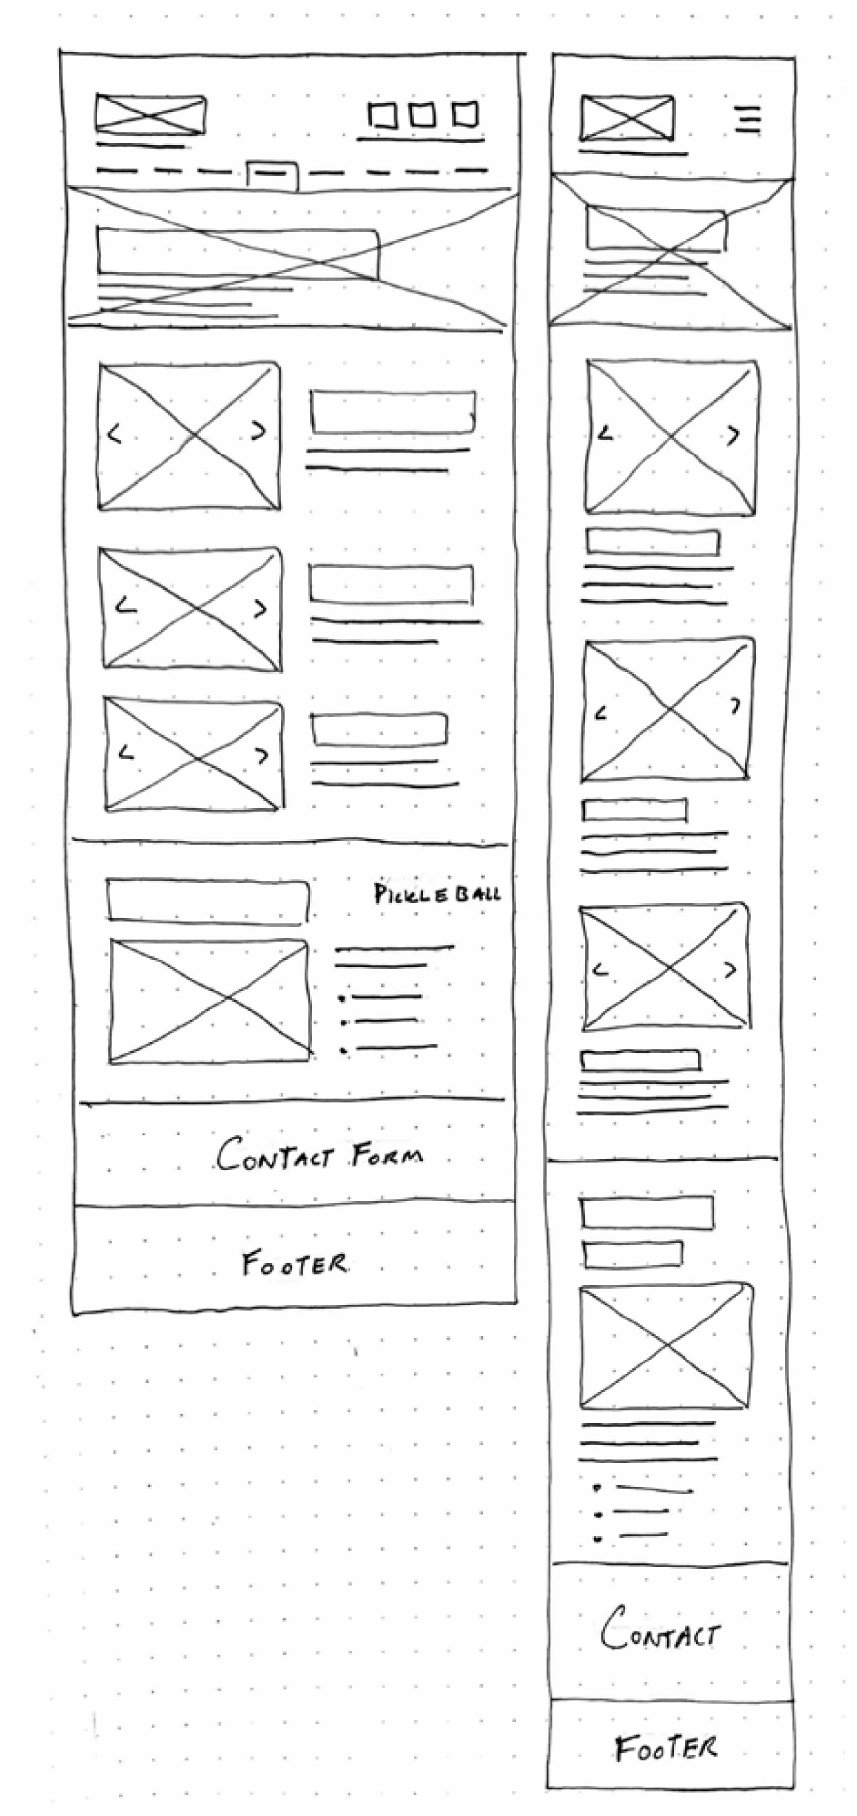 PICKLEBALL
CONTACT FORM
FOOTER
CONTACT
FOOTER